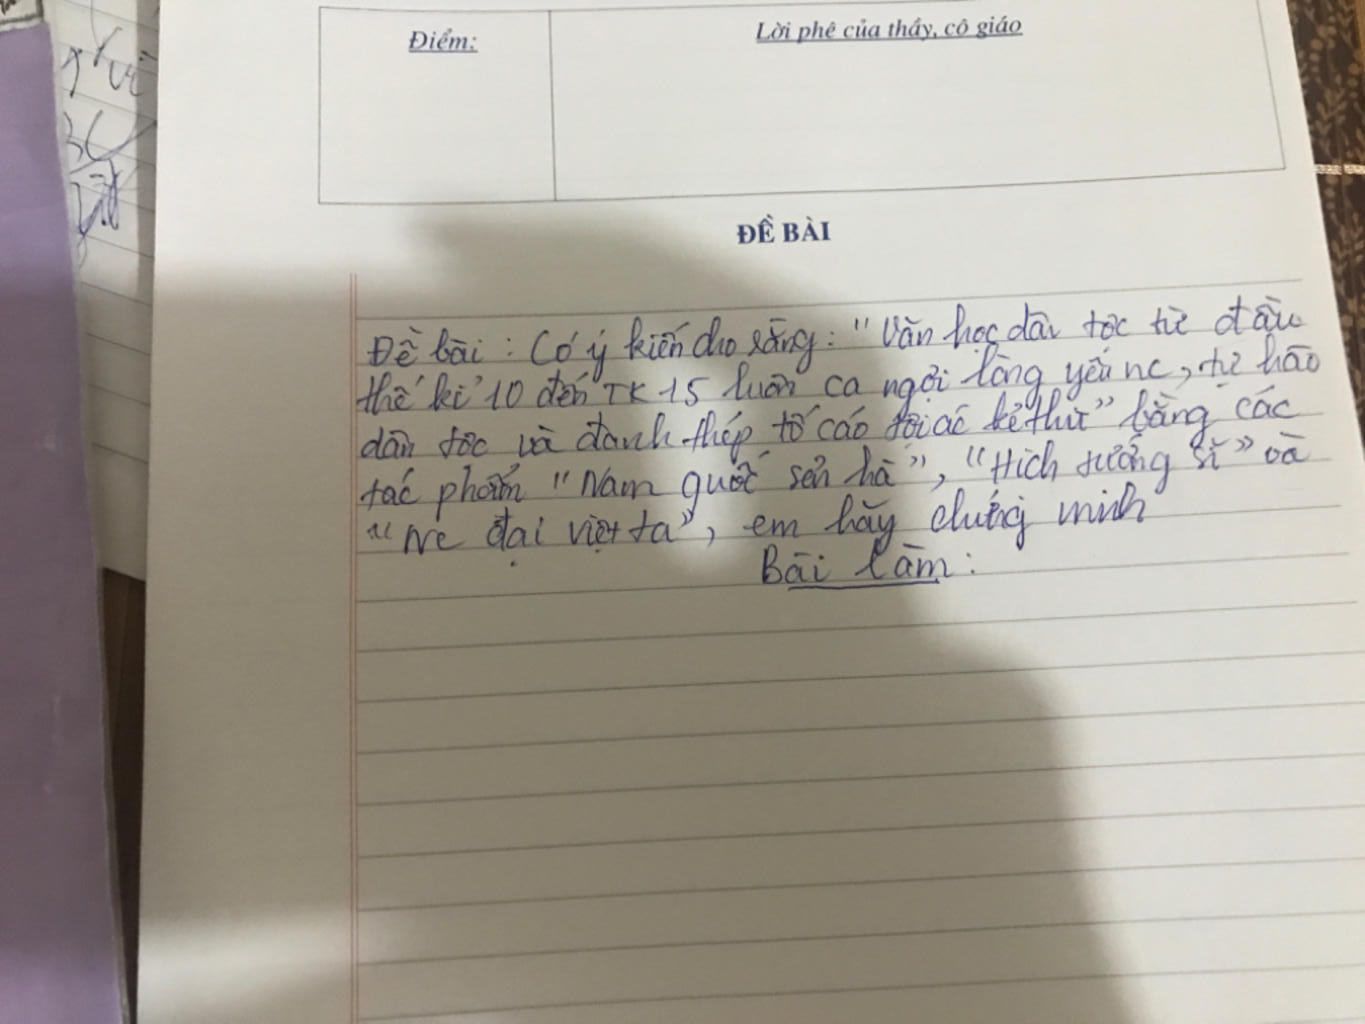 Điểm:
Lời phê của thầy, cô giáo
ĐỀ BÀI
Đề bài: Có ý kiến cho rằng: "Văn học dân tộc từ đầu
thế kỉ 10 đến TK 15 luôn ca ngợi lòng yêu nc, tự hào
dân tộc và đanh thép tố cáo tội ác kẻ thù" bằng các
tác phẩm "Nam quốc sơn hà", "Hịch tướng sĩ" và
"Nc đại việt ta", em hãy chứng minh
Bài làm: